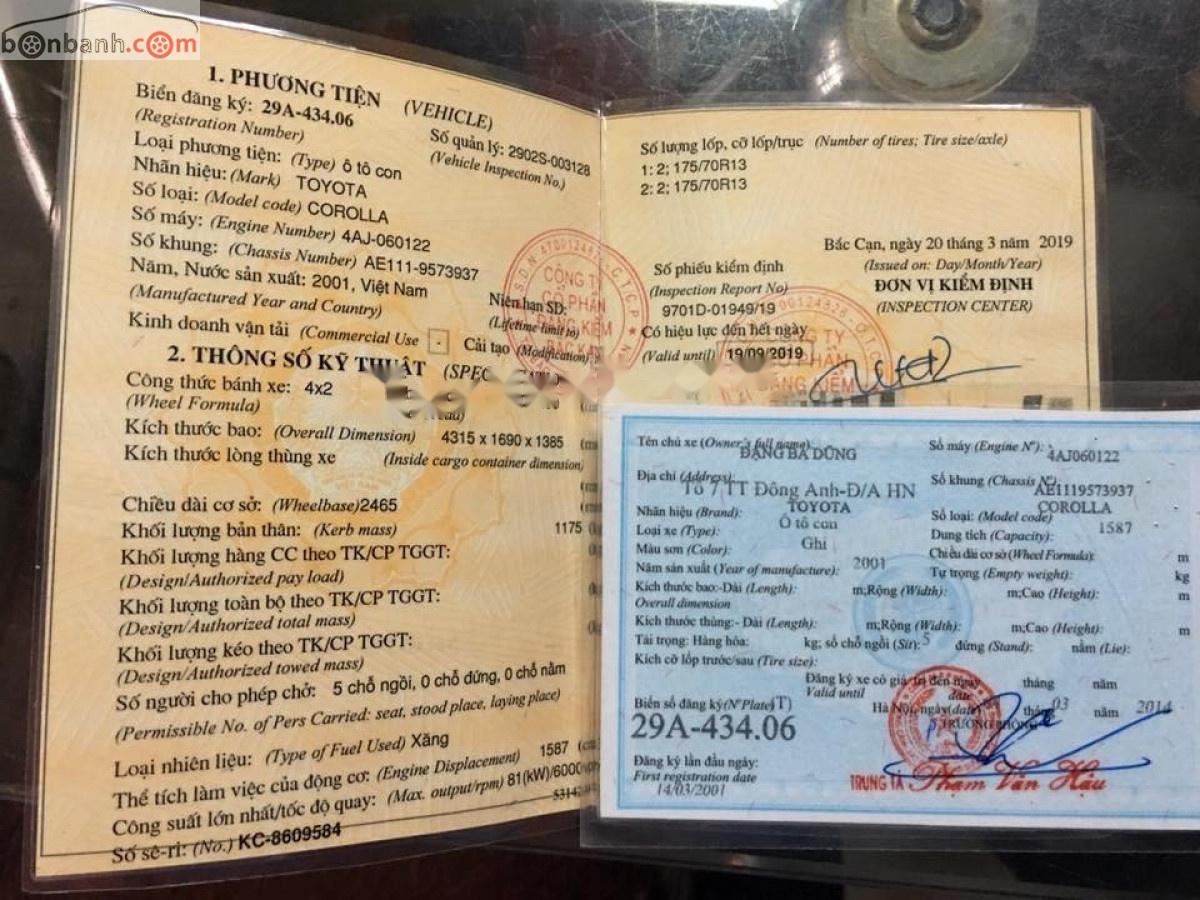 bonbanh.com
1. PHƯƠNG TIỆN (VEHICLE)
Biển đăng ký: 29A-434.06
(Registration Number)
Số quản lý: 2902S-003128
(Vehicle Inspection No.)
Loại phương tiện: (Type) ô tô con
Nhãn hiệu: (Mark) TOYOTA
Số loại: (Model code) COROLLA
Số máy: (Engine Number) 4AJ-060122
Số khung: (Chassis Number) AE111-9573937
Năm, Nước sản xuất: 2001, Việt Nam
(Manufactured Year and Country)
Niên hạn SD:
(Lifetime limit to)
Kinh doanh vận tải (Commercial Use -
Cải tạo (Modification)
2. THÔNG SỐ KỸ THUẬT
Công thức bánh xe: 4x2
(Wheel Formula)
Kích thước bao: (Overall Dimension) 4315 x 1690 x 1385
Kích thước lòng thùng xe (Inside cargo container dimension)
Chiều dài cơ sở: (Wheelbase) 2465
Khối lượng bản thân: (Kerb mass) 1175
Khối lượng hàng CC theo TK/CP TGGT:
(Design/Authorized pay load)
Khối lượng toàn bộ theo TK/CP TGGT:
(Design/Authorized total mass)
Khối lượng kéo theo TK/CP TGGT:
(Design/Authorized towed mass)
Số người cho phép chở: 5 chỗ ngồi, 0 chỗ đứng, 0 chỗ nằm
(Permissible No. of Pers Carried: seat, stood place, laying place)
Loại nhiên liệu: (Type of Fuel Used) Xăng
Thể tích làm việc của động cơ: (Engine Displacement) 1587
Công suất lớn nhất/tốc độ quay: (Max. output/rpm) 81(kW)/6000
Số sê-ri: (No.) KC-8609584
Số lượng lốp, cỡ lốp/trục (Number of tires; Tire size/axle)
1: 2; 175/70R13
2: 2; 175/70R13
Bắc Cạn, ngày 20 tháng 3 năm 2019
(Issued on: Day/Month/Year)
Số phiếu kiểm định
(Inspection Report No)
9701D-01949/19
ĐƠN VỊ KIỂM ĐỊNH
(INSPECTION CENTER)
Có hiệu lực đến hết ngày
(Valid until) 19/09/2019
CÔNG TY
CỔ PHẦN
ĐĂNG KIỂM
BẮC KẠN
Tên chủ xe (Owner's full name)
ĐẶNG BÁ DŨNG
Số máy (Engine Nº): 4AJ060122
Địa chỉ (Address):
Tổ 7 TT Đông Anh-Đ/A HN
Số khung (Chassis Nº): AE1119573937
Nhãn hiệu (Brand): TOYOTA
Số loại: (Model code) COROLLA
Loại xe (Type): Ô tô con
Dung tích (Capacity): 1587
Màu sơn (Color): Ghi
Chiều dài cơ sở (Wheel Formula): m
Năm sản xuất (Year of manufacture): 2001
Tự trọng (Empty weight): kg
Kích thước bao:-Dài (Length): m;Rộng (Width): m;Cao (Height): m
Overall dimension
Kích thước thùng:- Dài (Length): m;Rộng (Width): m;Cao (Height): m
Tải trọng: Hàng hóa: kg; số chỗ ngồi (Sit): 5 đứng (Stand): nằm (Lie):
Kích cỡ lốp trước/sau (Tire size):
Đăng ký xe có giá trị đến ngày tháng năm
Valid until date
Biển số đăng ký(NºPlate)(T)
Hà Nội, ngày(date) tháng 03 năm 2014
29A-434.06
TRƯỞNG PHÒNG
Đăng ký lần đầu ngày:
First registration date
14/03/2001
TRUNG TÁ Phạm Văn Hậu